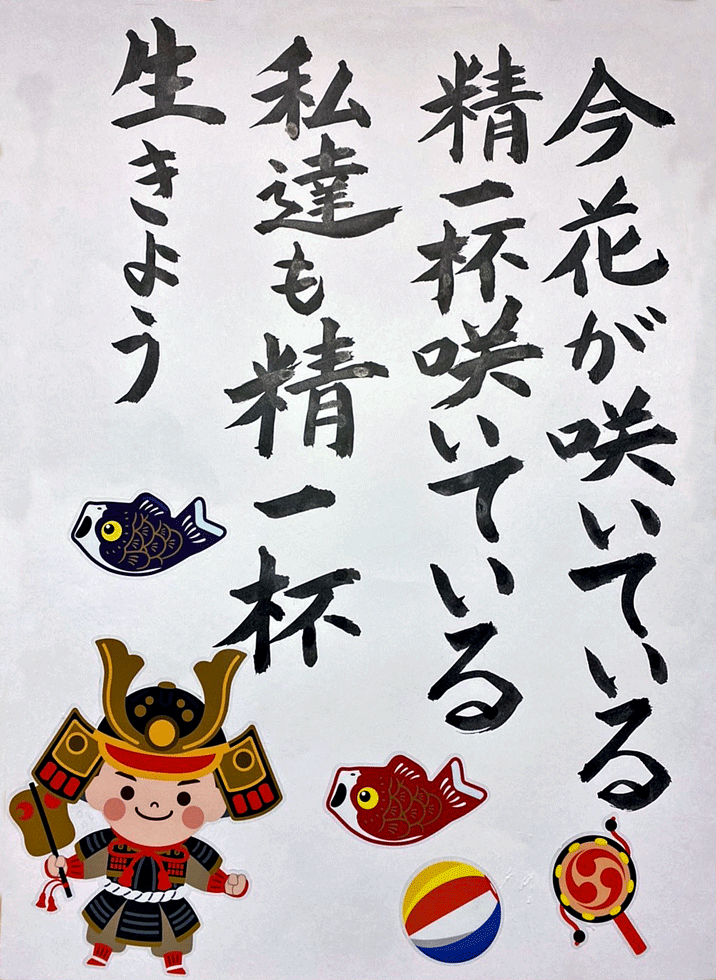 今花が咲いている
精一杯咲いている
私達も精一杯
生きよう